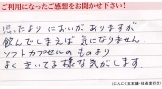 ご利用になったご感想をお聞かせ下さい!
思ったより においがありますが
飲んでしまえば 気になりません
ソフトカプセルのものより
よく きいてる様な気がします。
(にんにく玉本舗・社長直行)